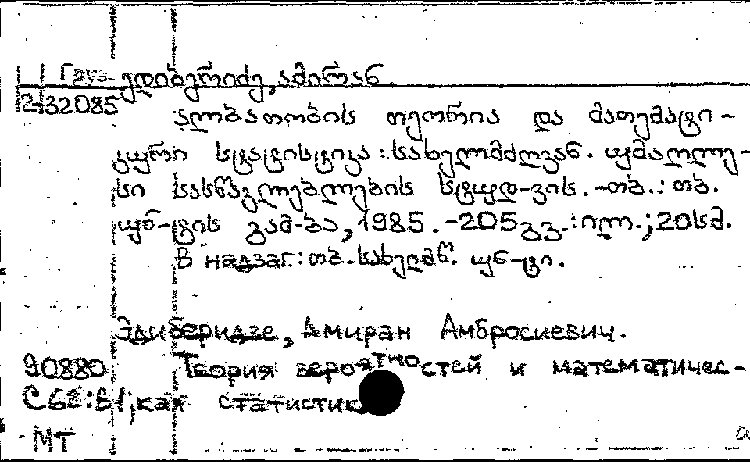 Груз. ედიბერიძე, ამირან
2-32085 ალბათობის თეორია და მათემატი-
კური სტატისტიკა: სახელმძღვან. უმაღლე-
სი სასწავლებლების სტუდ-ვის. -თბ.: თბ.
უნ-ტის გამ-ბა, 1985. -205გვ.: ილ.; 20სმ.
В надзаг.: თბ. სახელმწ. უნ-ტი.
Эдиберидзе, Амиран Амбросиевич.
90880 Теория вероятностей и математичес-
кая статистик
МТ